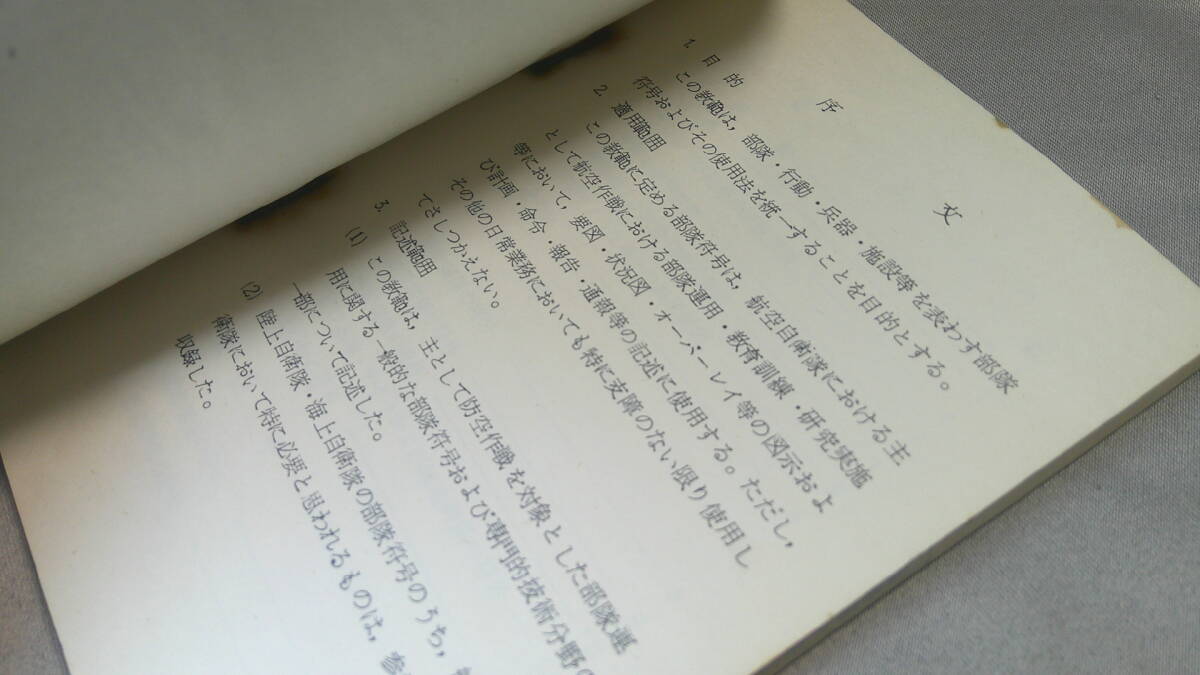 序 文
1. 目的
この教範は,部隊・行動・兵器・施設等を表わす部隊
符号およびその使用法を統一することを目的とする。
2. 適用範囲
この教範に定める部隊符号は,航空自衛隊における主
として航空作戦における部隊運用・教育訓練・研究実施
等において,要図・状況図・オーバーレイ等の図示およ
び計画・命令・報告・通報等の記述に使用する。ただし,
その他の日常業務においても特に支障のない限り使用し
てさしつかえない。
3. 記述範囲
(1) この教範は,主として防空作戦を対象とした部隊運
用に関する一般的な部隊符号および専門的技術分野の
一部について記述した。
(2) 陸上自衛隊・海上自衛隊の部隊符号のうち,
衛隊において特に必要と思われるものは,参
収録した。